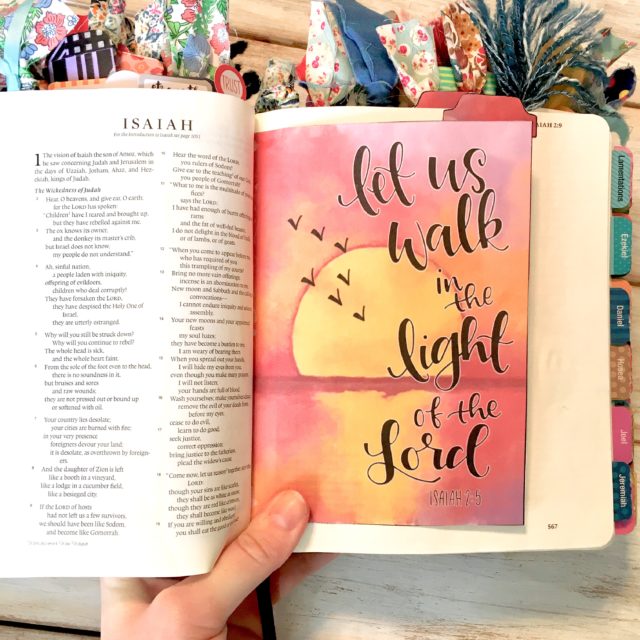 TRUST
ISAIAH
1 The vision of Isaiah the son of Amoz, which
he saw concerning Judah and Jerusalem in
the days of Uzziah, Jotham, Ahaz, and Hez-
ekiah, kings of Judah.
The Wickedness of Judah
2 Hear, O heavens, and give ear, O earth;
for the LORD has spoken:
"Children have I reared and brought up,
but they have rebelled against me.
3 The ox knows its owner,
and the donkey its master's crib,
but Israel does not know,
my people do not understand."
4 Ah, sinful nation,
a people laden with iniquity,
offspring of evildoers,
children who deal corruptly!
They have forsaken the LORD,
they have despised the Holy One of
Israel,
they are utterly estranged.
5 Why will you still be struck down?
Why will you continue to rebel?
The whole head is sick,
and the whole heart faint.
6 From the sole of the foot even to the head,
there is no soundness in it,
but bruises and sores
and raw wounds;
they are not pressed out or bound up
or softened with oil.
7 Your country lies desolate;
your cities are burned with fire;
in your very presence
foreigners devour your land;
it is desolate, as overthrown by foreign-
ers.
8 And the daughter of Zion is left
like a booth in a vineyard,
like a lodge in a cucumber field,
like a besieged city.
9 If the LORD of hosts
had not left us a few survivors,
we should have been like Sodom,
and become like Gomorrah.
10 Hear the word of the LORD,
you rulers of Sodom!
Give ear to the teaching of our God,
you people of Gomorrah!
11 "What to me is the multitude of
says the LORD;
I have had enough of burnt offerings
rams
and the fat of well-fed beasts;
I do not delight in the blood of bulls,
or of lambs, or of goats.
12 "When you come to appear before
who has required of you
this trampling of my courts?
13 Bring no more vain offerings;
incense is an abomination to me.
New moon and Sabbath and the calling
convocations—
I cannot endure iniquity and
assembly.
14 Your new moons and your appointed
feasts
my soul hates;
they have become a burden to me;
I am weary of bearing them.
15 When you spread out your hands,
I will hide my eyes from you;
even though you make many prayers,
I will not listen;
your hands are full of blood.
16 Wash yourselves; make yourselves clean;
remove the evil of your deeds from
before my eyes;
cease to do evil,
17 learn to do good;
seek justice,
correct oppression;
bring justice to the fatherless,
plead the widow's cause.
18 "Come now, let us reason together, says the
LORD:
though your sins are like scarlet,
they shall be as white as snow;
though they are red like crimson,
they shall become like wool.
19 If you are willing and obedient,
you shall eat the good of
let us
walk
in
the
light
of the
Lord
ISAIAH 2:5
ISAIAH 2:9
567
Lamentations
Ezekiel
Daniel
Hosea
Joel
Jeremiah